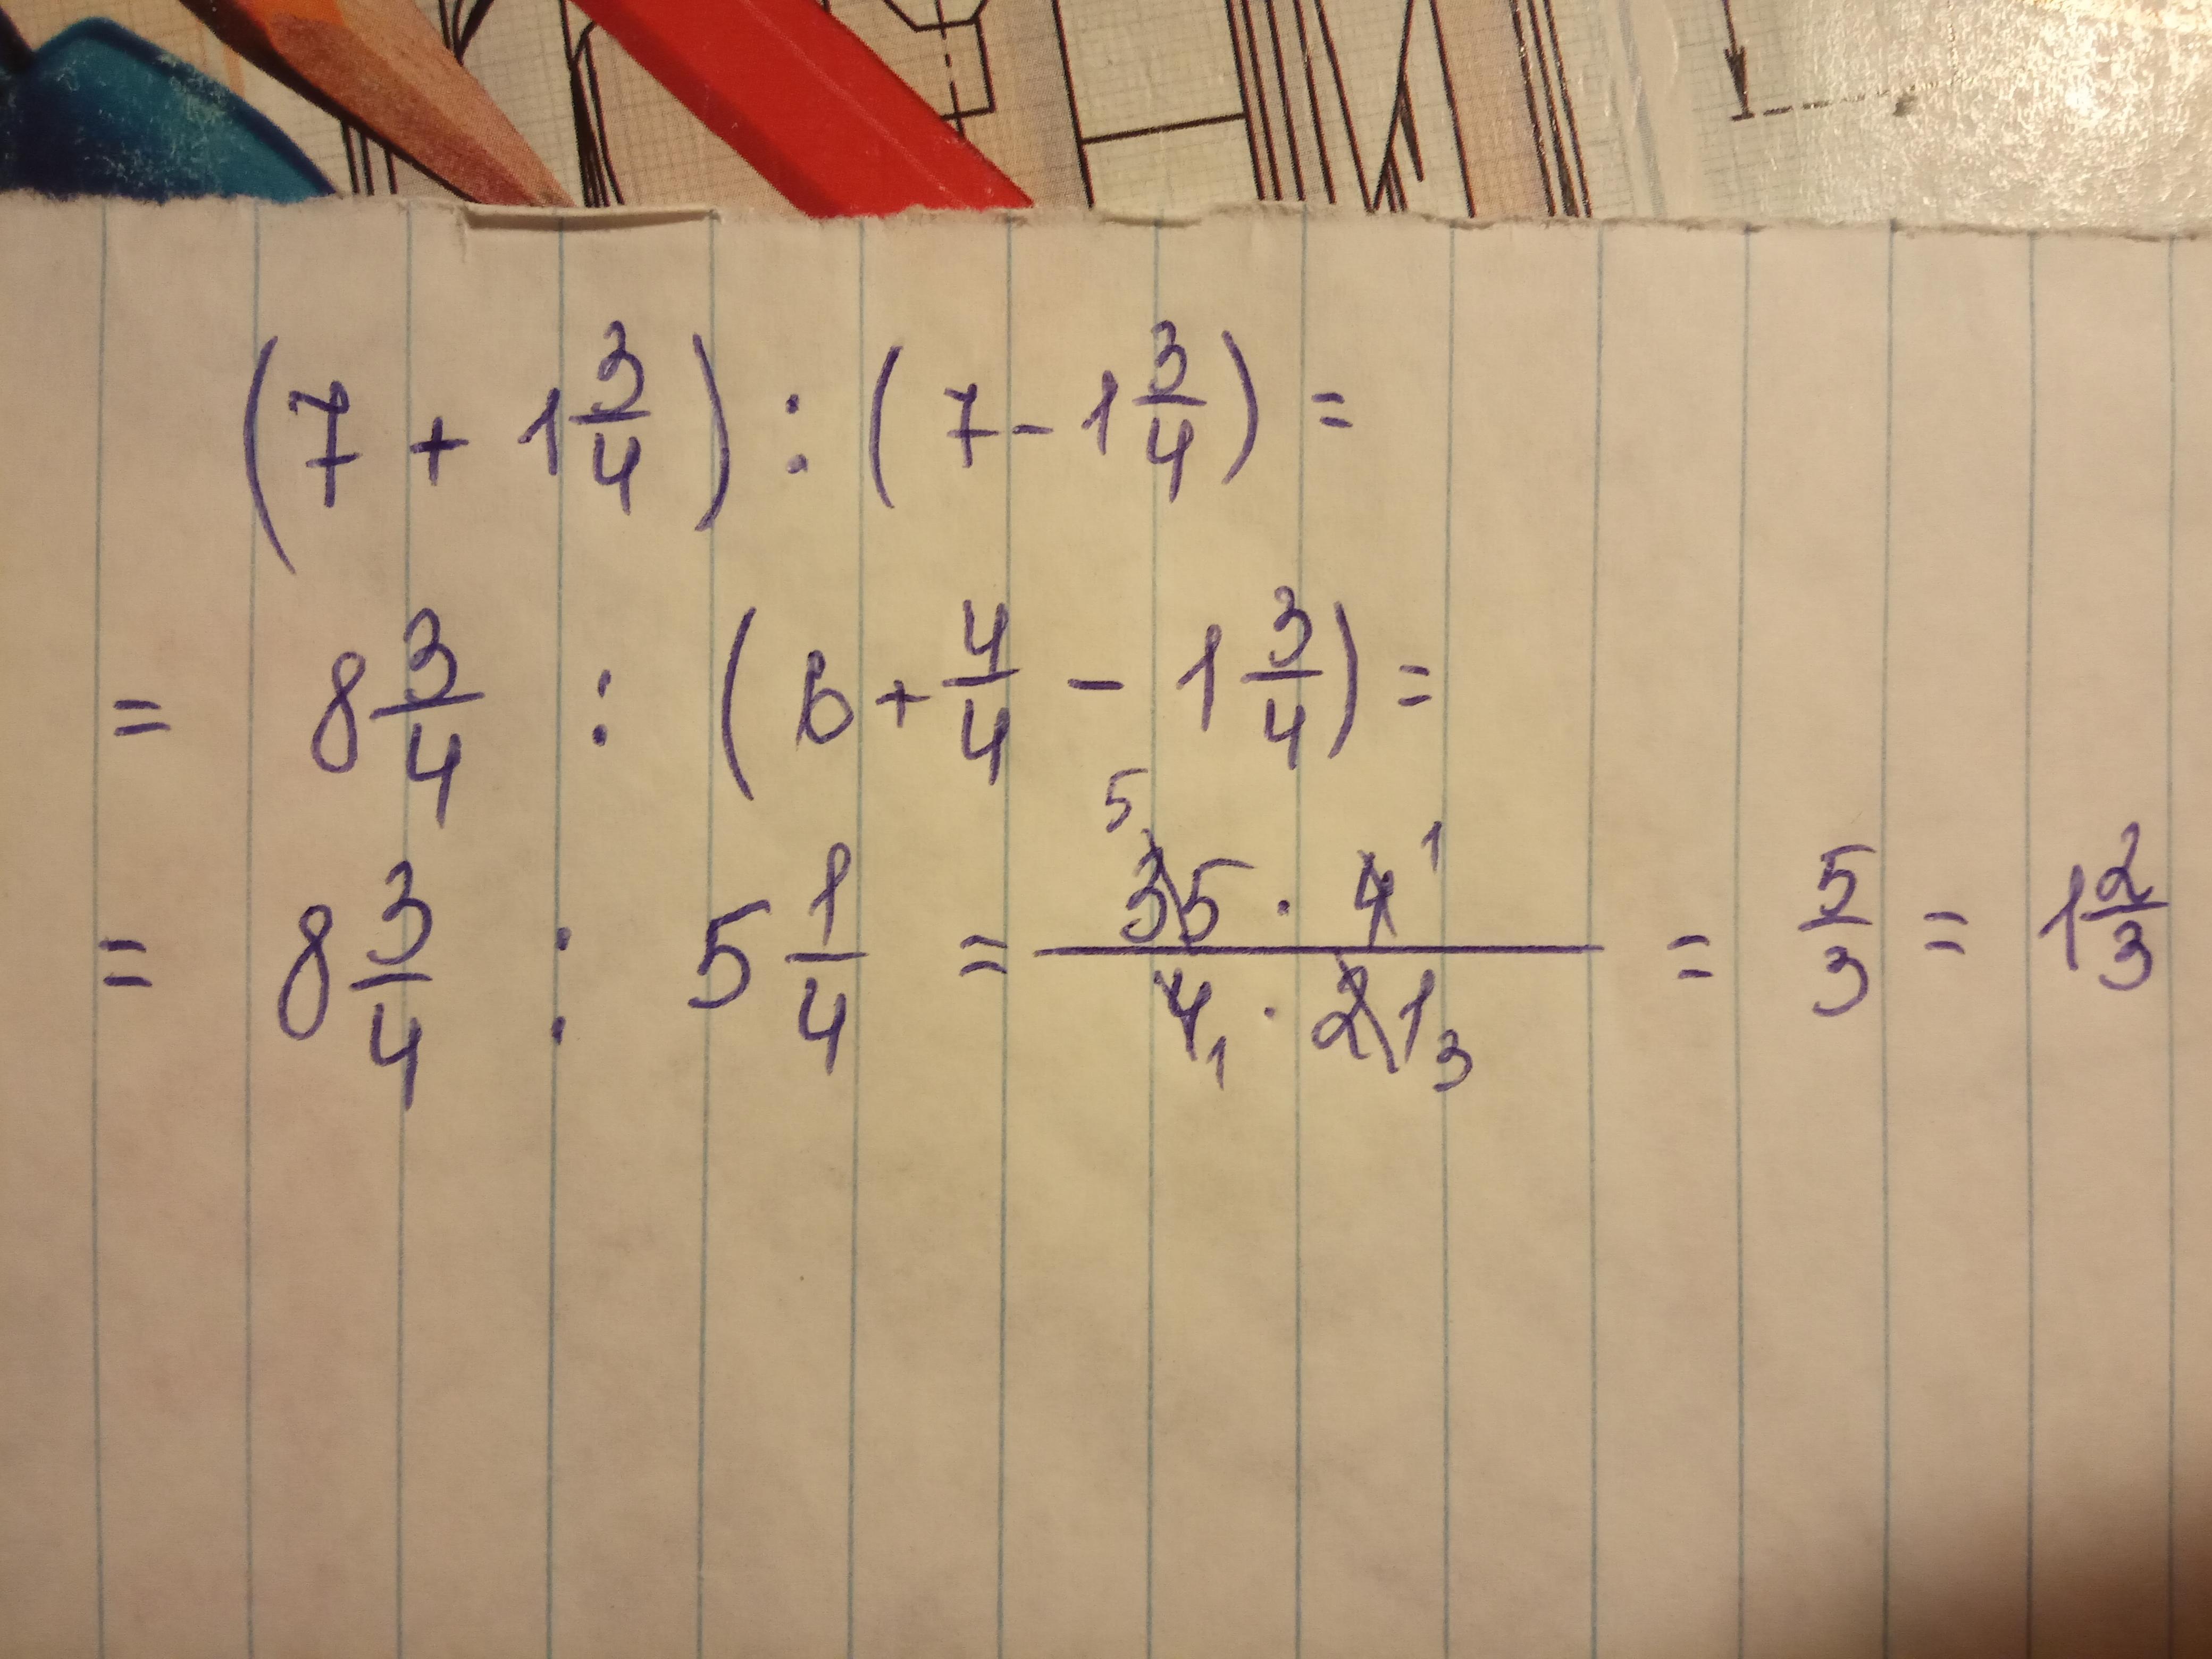 (7 + 1 3/4) : (7 - 1 3/4) =
= 8 3/4 : (6 + 4/4 - 1 3/4) =
= 8 3/4 : 5 1/4 = 35 5 · 4 1 / 4 1 · 21 3 = 5/3 = 1 2/3